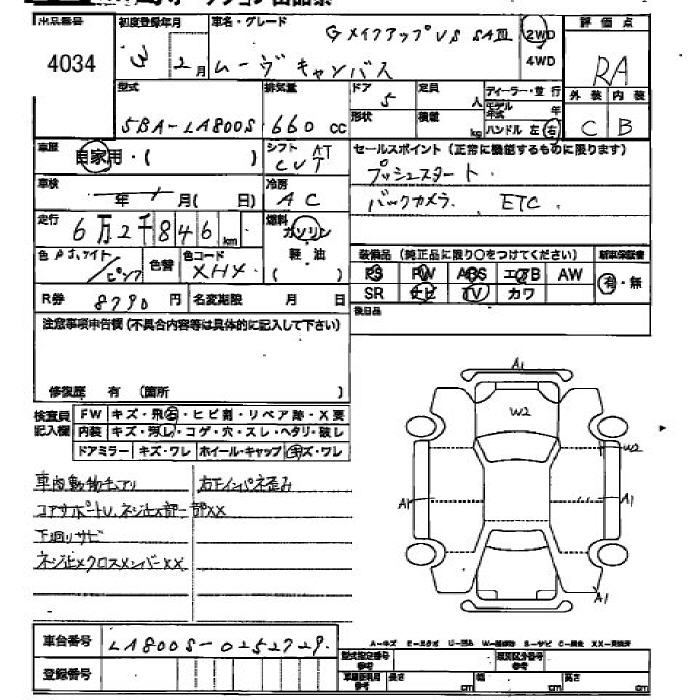 出品番号 初度登録年月 車名・グレード 評価点
4034 3 2月 Gメイクアップ VS SAⅢ 2WD RA
ムーヴキャンバス 4WD
型式 排気量 ドア 定員 ディーラー・並行 外装 内装
5BA-LA800S 660cc 5 人 モデル年式 年 C B
形状 積載 kg ハンドル 左 右
車歴 自家用・( ) シフト AT セールスポイント(正常に機能するものに限ります)
CVT プッシュスタート
車検 年 月( 日) 冷房 AC バックカメラ ETC
走行 6万2千846km 燃料 ガソリン
軽油
( )
色 Pホワイト/ピンク 色替 色コード XHX 装備品(純正品に限り○をつけてください) 新車保証書
PS PW ABS エアB AW 有・無
R券 8790円 名変期限 月 日 SR ナビ TV カワ
後日品
注意事項申告欄(不具合内容等は具体的に記入して下さい)
修復歴 有(箇所 )
検査員記入欄 FW キズ・飛石・ヒビ割・リペア跡・X要
内装 キズ・汚レ・コゲ・穴・スレ・ヘタリ・破レ
ドアミラー キズ・ワレ ホイール・キャップ キズ・ワレ
車内動物モノアリ 右下インパネ歪み
コアサポートU,ネジ止メ部一部XX
下回リサビ
ネジ止メクロスメンバーXX
A1
W2
W2
A1 A1
A1
車台番号 LA800S-0252729
登録番号
A-キズ E-エクボ U-凹ミ W-補修跡 S-サビ C-腐食 XX-交換済
型式指定番号 参考 類別区分番号 参考
車庫証明用 参考 長さ cm 幅 cm 高さ cm